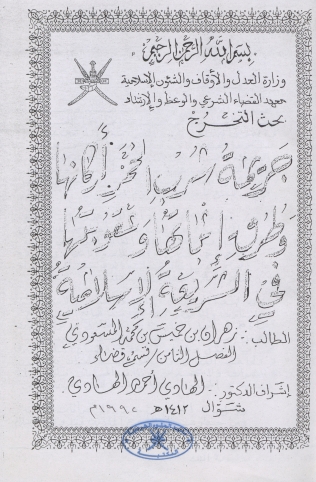 بسم الله الرحمن الرحيم
وزارة العدل والأوقاف والشئون الإسلامية
معهد القضاء الشرعي والوعظ والإرشاد
بحث التخرج
جريمة شرب الخمر أركانها
وطرق إثباتها وعقوبتها
في الشريعة الإسلامية
الطالب: زهران بن خميس بن محمد المسعودي
الفصل الثامن / قسم قضاء
إشراف الدكتور: الهادي أحمد الهادي
شوال ١٤١٢ هـ ١٩٩٢م